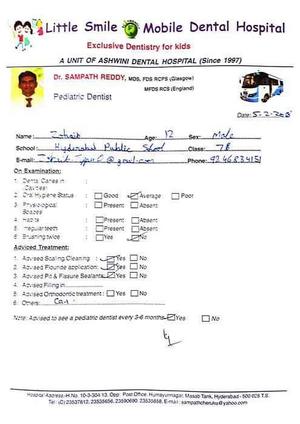 Little Smile Mobile Dental Hospital
Exclusive Dentistry for kids
A UNIT OF ASHWINI DENTAL HOSPITAL (Since 1997)
Dr. SAMPATH REDDY, MDS, FDS RCPS (Glasgow)
MFDS RCS (England)
Pediatric Dentist
Date:
Name: Age: 12 Sex: Male
School: Hyderabad Public School Class: 7B
E-mail: @gmail.com Phone: 9246834151
On Examination:
1 Dental Caries in (Cavities)
2 Oral Hygiene Status : Good Average Poor
3 Physiological Spaces : Present Absent
4 Habits : Present Absent
5 Irregular teeth : Present Absent
6 Brushing twice : Yes No
Adviced Treatment:
1 Advised Scaling Cleaning : Yes No
2 Advised Flouride application: Yes No
3 Advised Pit & Fissure Sealants Yes No
4 Advised Filling in
5 Advised Orthodontic treatment : Yes No
6 Others
Note: Advised to see a pediatric dentist every 3-6 months Yes No
Hospital Address: H.No. 10-3-304/13, Opp: Post Office, Humayunnagar, Masab Tank, Hyderabad - 500 028 T.S.
Tel: (O) 23537812, 23535656, 23590690, 23535658, E-mail: sampathcheruku@yahoo.com